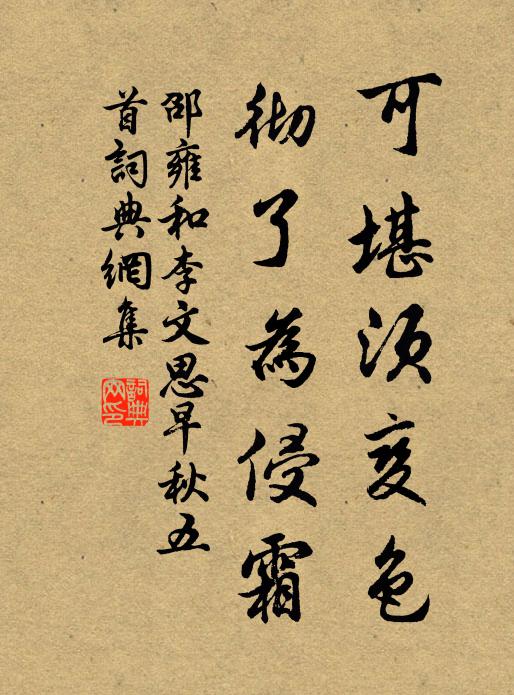 可堪須变色
彻了為侵霜
邵雍和李文思早秋五
首詞典網集
詞典
網印